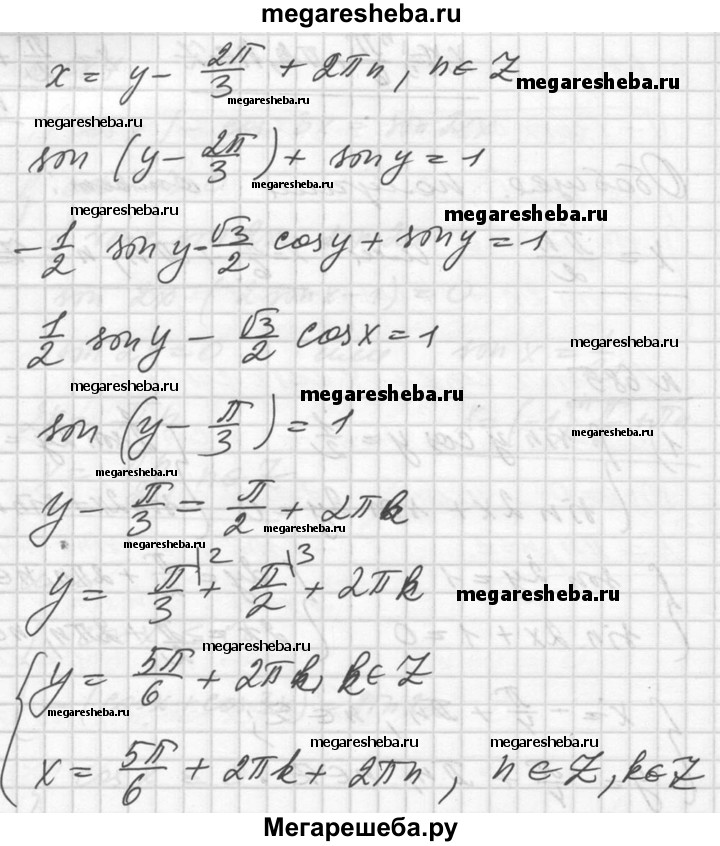 megaresheba.ru
x = y - 2π/3 + 2πn, n∈Z
megaresheba.ru
megaresheba.ru
megaresheba.ru
son (y - 2π/3) + sony = 1
megaresheba.ru
megaresheba.ru
megaresheba.ru
-1/2 sony - √3/2 cosy + sony = 1
1/2 sony - √3/2 cosx = 1
megaresheba.ru
megaresheba.ru
megaresheba.ru
son (y - π/3) = 1
megaresheba.ru
megaresheba.ru
y - π/3 = π/2 + 2πk
megaresheba.ru
megaresheba.ru
y = π/3 |2 + π/2 |3 + 2πk
megaresheba.ru
megaresheba.ru
{ y = 5π/6 + 2πk, k∈Z
megaresheba.ru
megaresheba.ru
megaresheba.ru
x = 5π/6 + 2πk + 2πn, n∈Z, k∈Z
Мегарешеба.ру